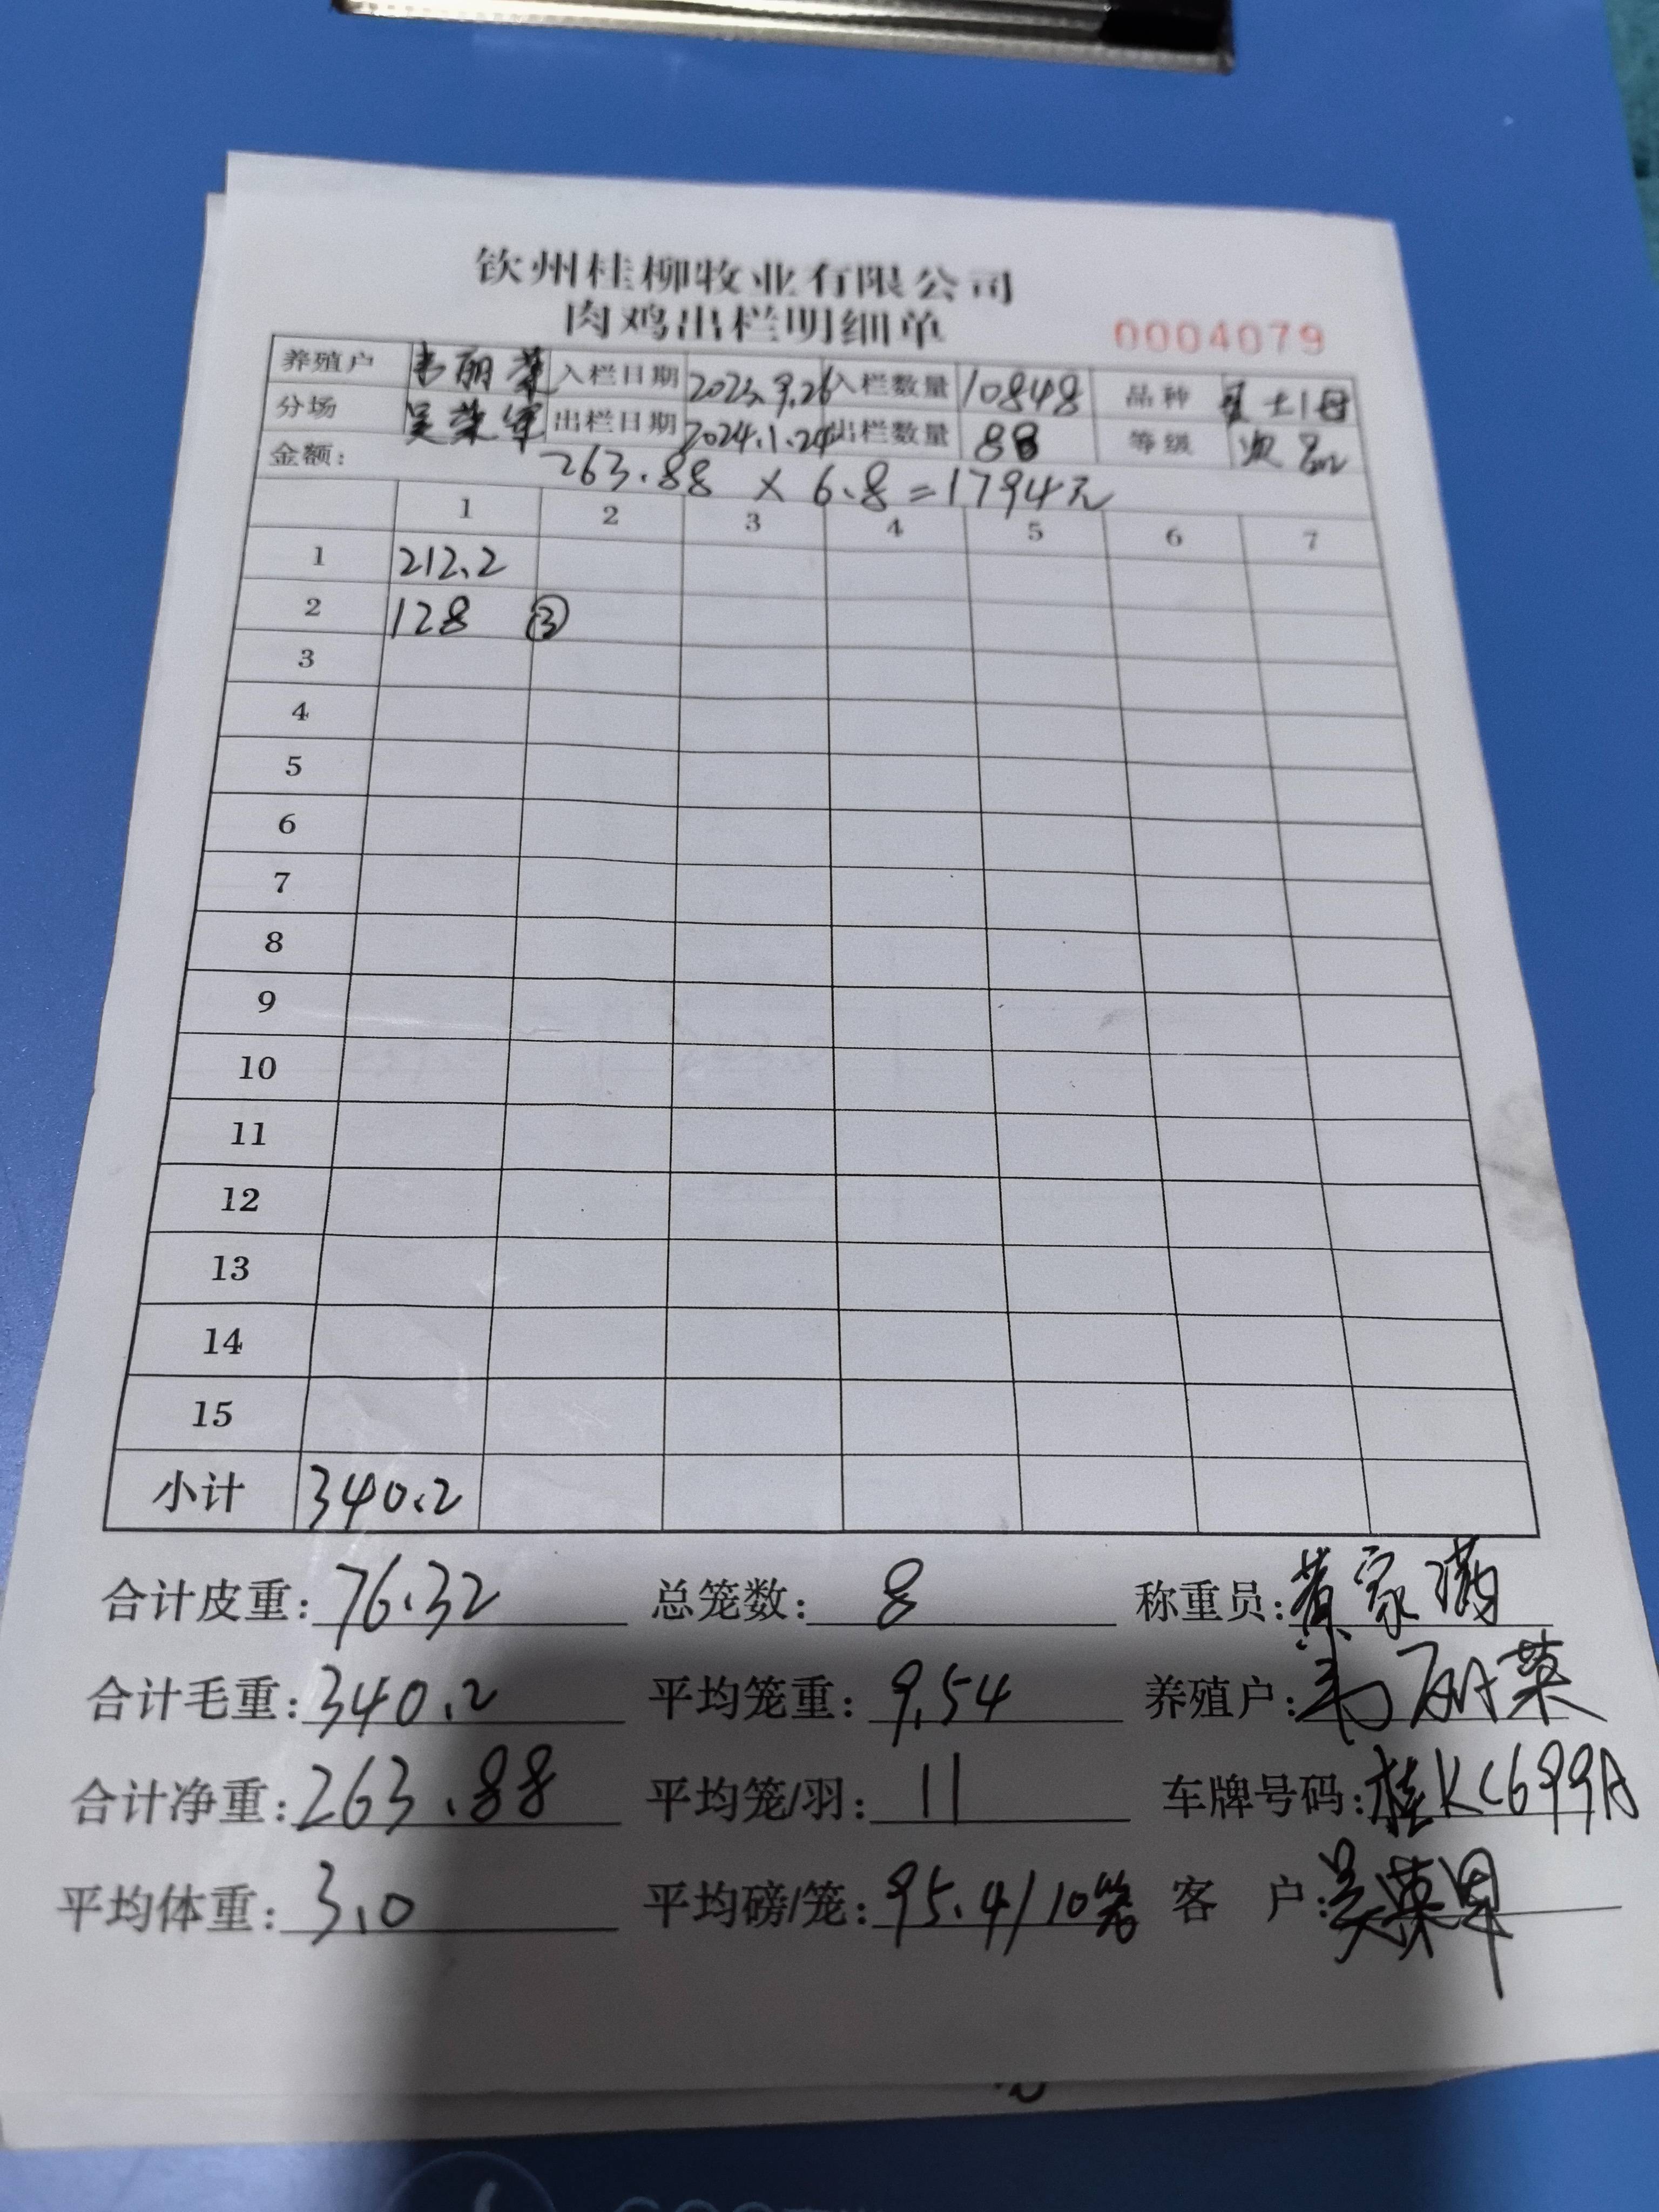 钦州桂柳牧业有限公司
肉鸡出栏明细单 0004079
养殖户 韦丽菜 入栏日期 2023.9.26 入栏数量 10848 品种 土1母
分场 吴荣军 出栏日期 2024.1.24 出栏数量 88 等级 次品
金额: 263.88 × 6.8=1794元
1 2 3 4 5 6 7
1 212.2
2 128 ③
3
4
5
6
7
8
9
10
11
12
13
14
15
小计 340.2
合计皮重: 76.32 总笼数: 8 称重员: 黄家满
合计毛重: 340.2 平均笼重: 9.54 养殖户: 韦丽菜
合计净重: 263.88 平均笼/羽: 11 车牌号码: 桂KC699A
平均体重: 3.0 平均磅/笼: 95.4/10笼 客 户: 吴荣军